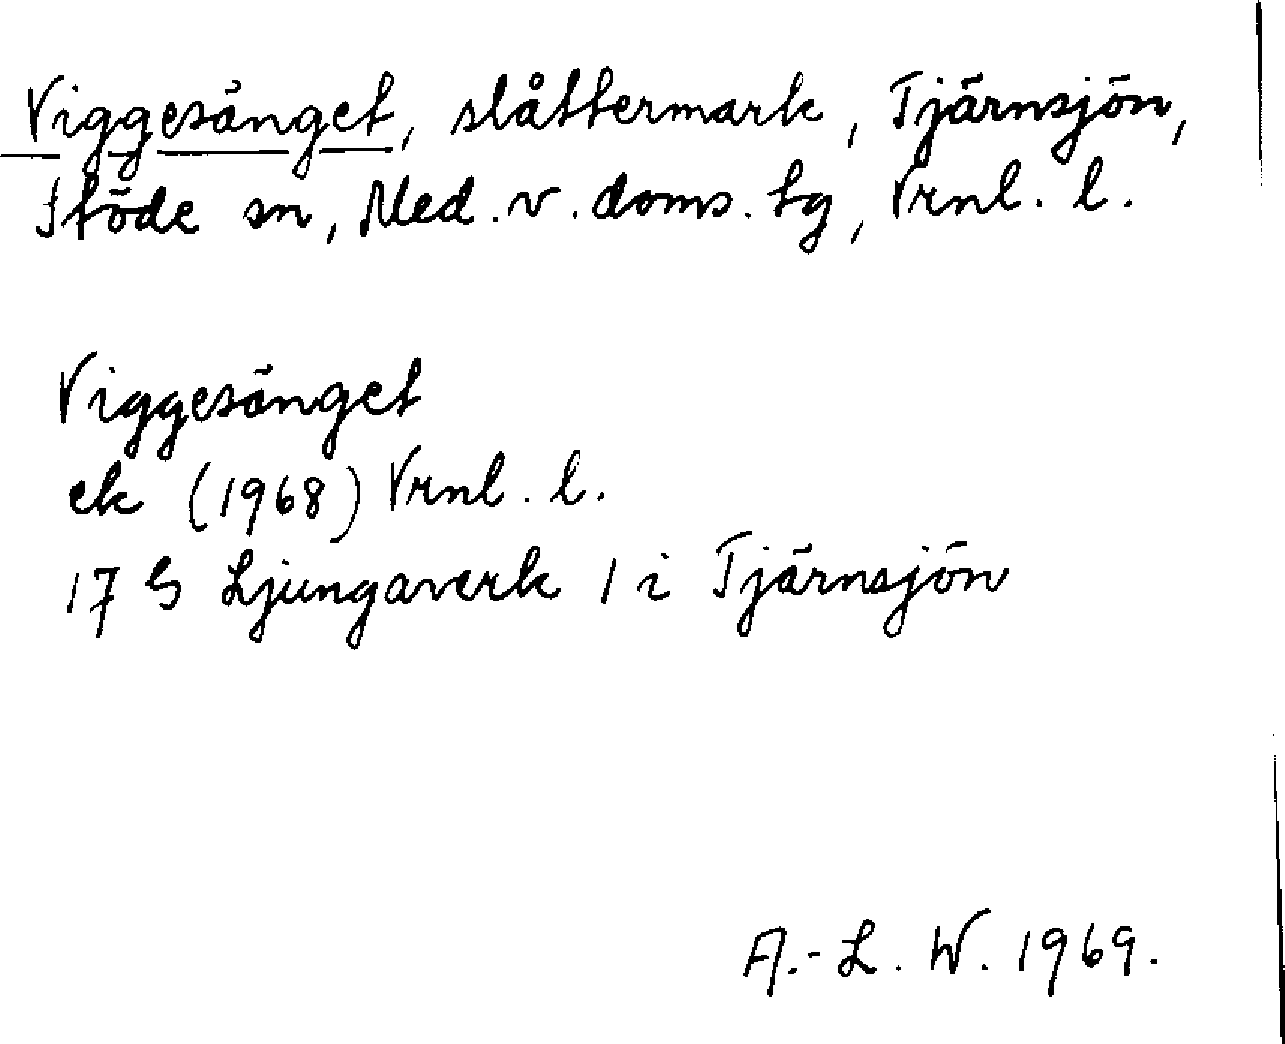 Viggesänget, slåttermark, Tjärnsjön,
Stöde sn, Med. v. doms. tg, Vrnl. l.
Viggesänget
ek (1968) Vrnl. l.
17 G Ljungaverk 1 i Tjärnsjön
A.-L. W. 1969.